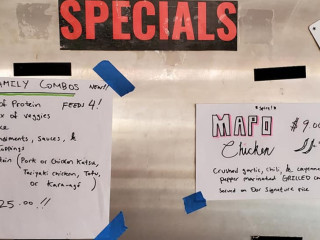 SPECIALS
AMILY COMBOS NEW!!
of Protein FEEDS 4!
x of veggies
ce
ndiments, Sauces, &
Toppings
tein (Pork or Chicken Katsu,
Teriyaki chicken, Tofu,
or Karaage)
25.00!!
MAPO $9.00
Chicken
Crushed garlic, chili, & cayenne
pepper marinated GRILLED
served on Our Signature rice